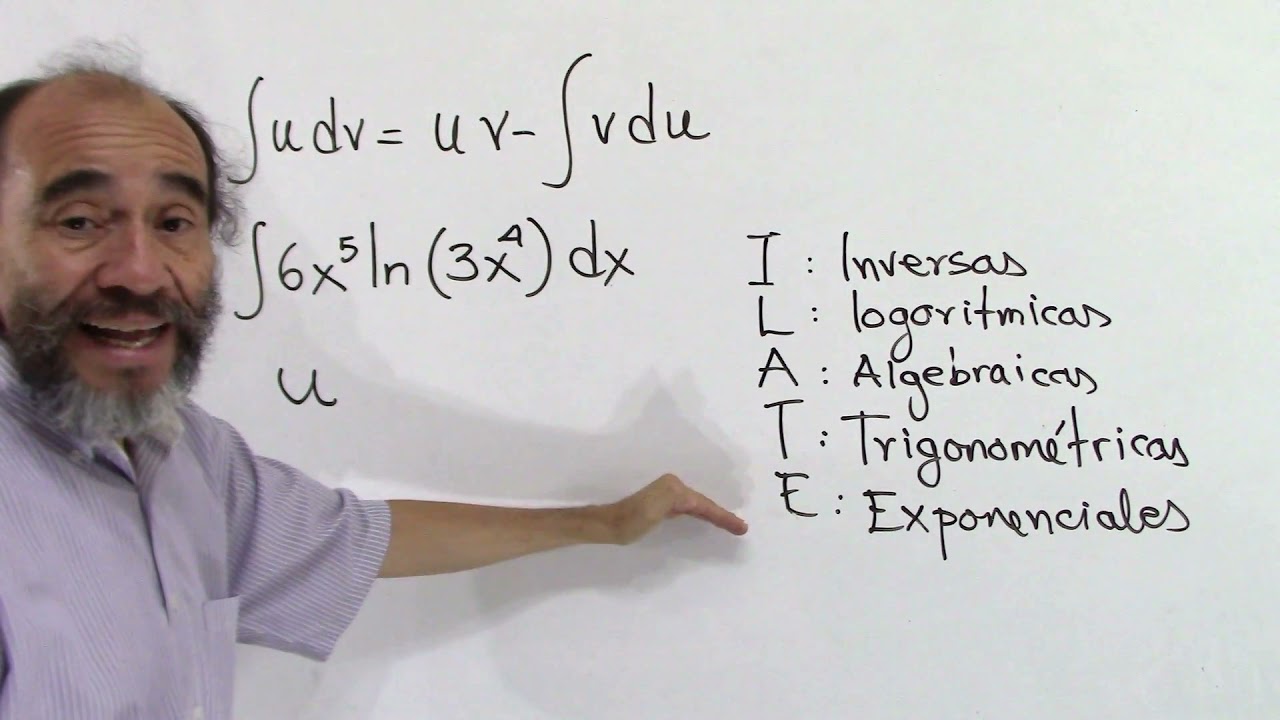 ∫u dv = u v - ∫v du
∫6x⁵ ln (3x⁴) dx
u
I : Inversas
L : logoritmicas
A : Algebraicas
T : Trigonométricas
E : Exponenciales